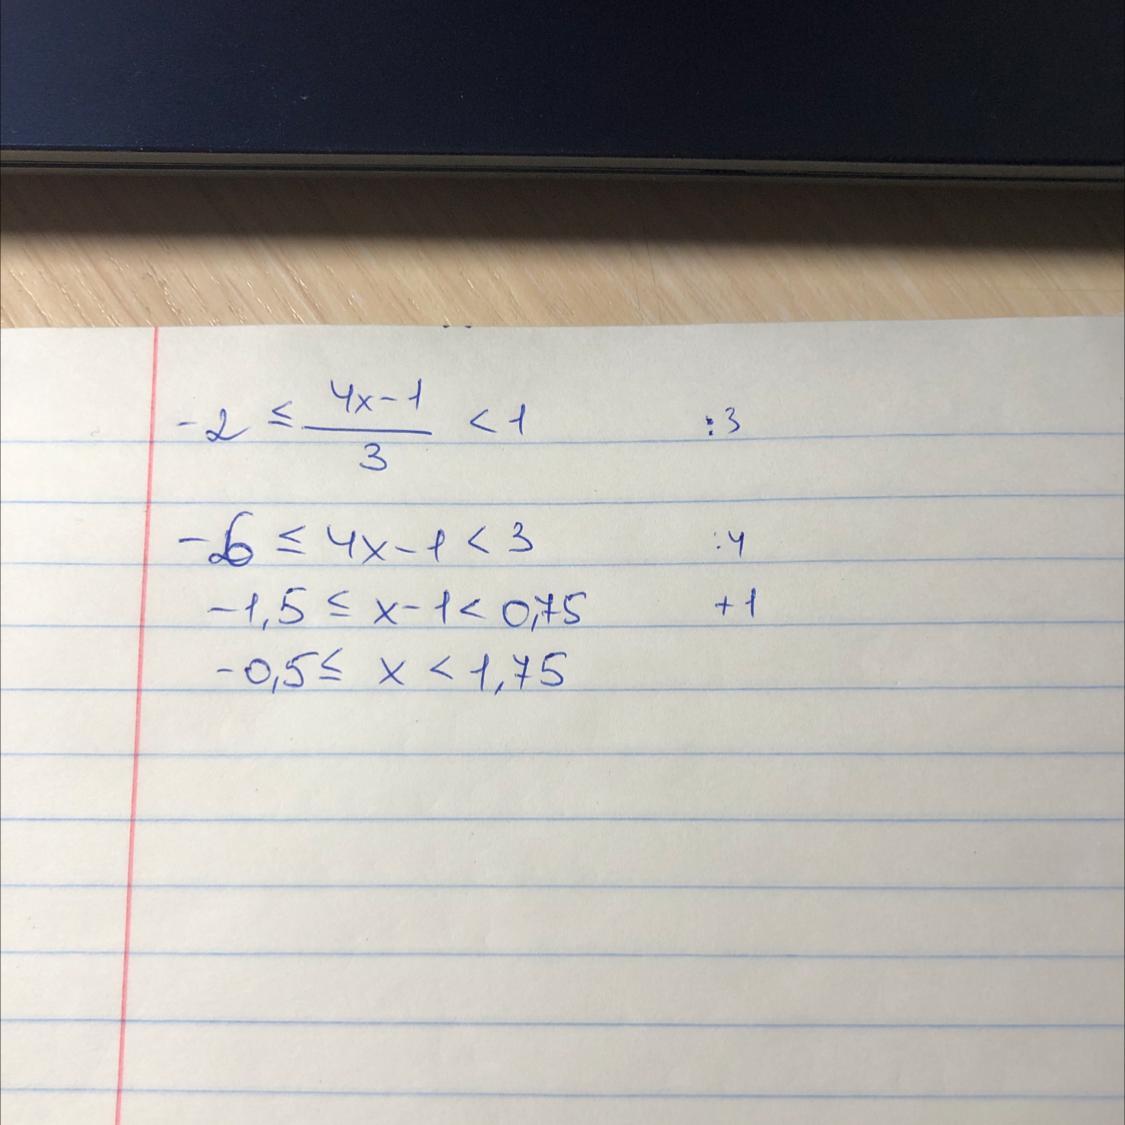 -2 ≤ (4x-1)/3 < 1 :3
-6 ≤ 4x-1 < 3 :4
-1,5 ≤ x-1 < 0,75 +1
-0,5 ≤ x < 1,75